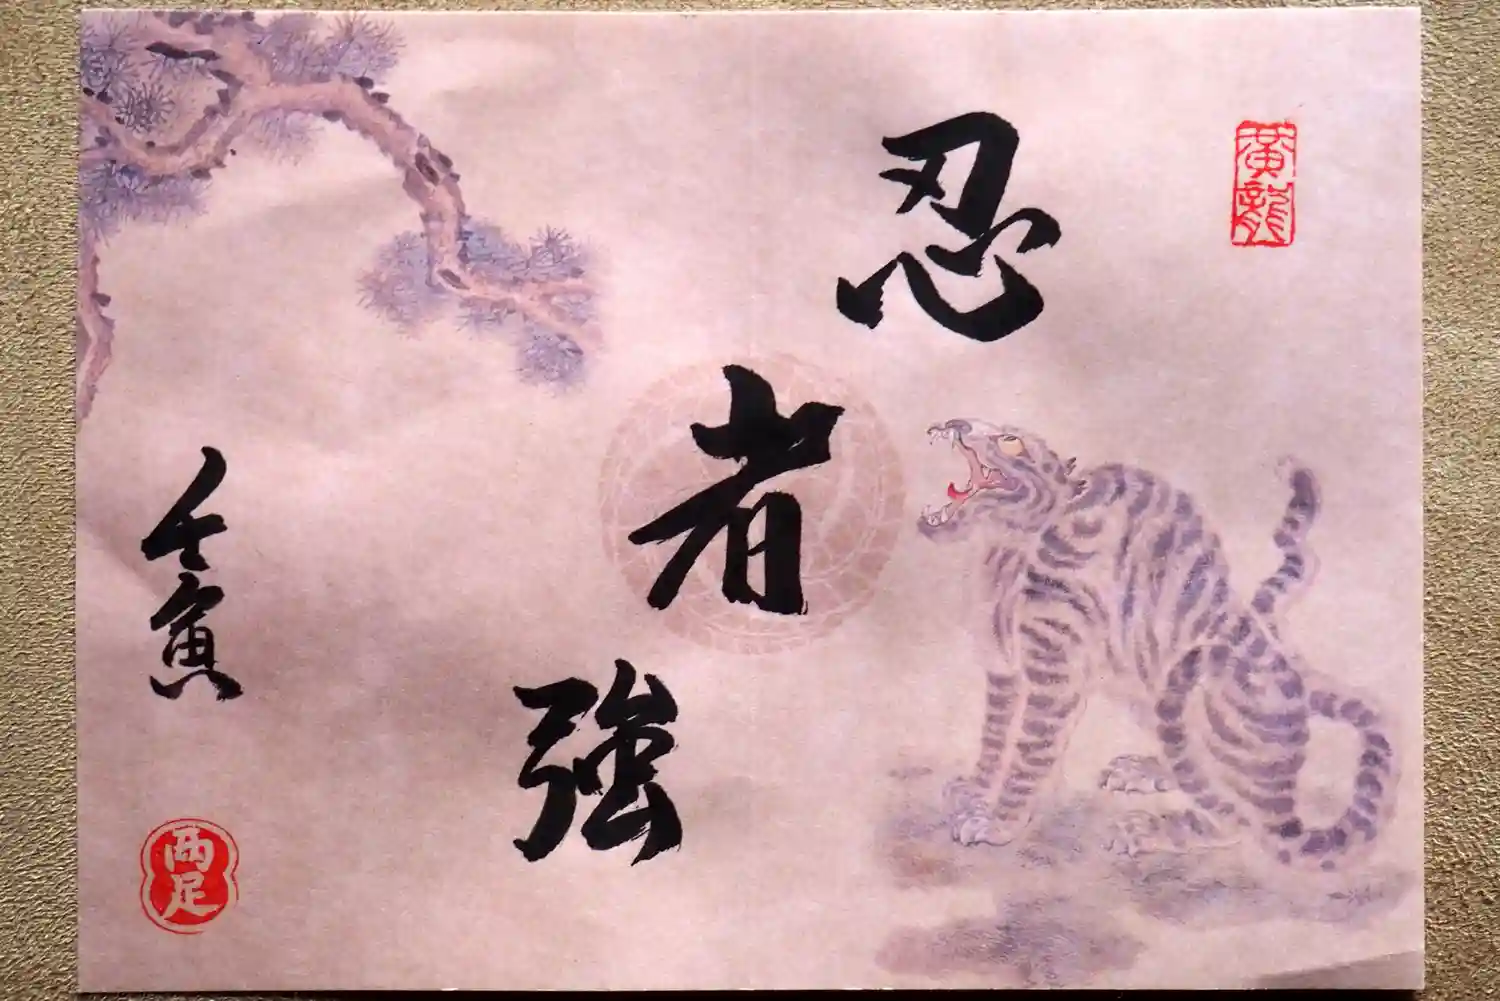 黄龍
忍者強
壬寅
西足